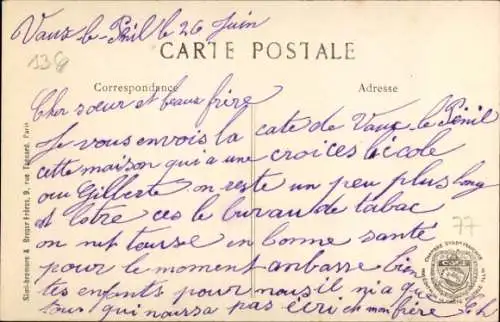 Vaux-le-Pénil le 26 Juin
CARTE POSTALE
138
Correspondance
Adresse
Cher sœur et beaux frère
Je vous envois la cate de Vaux-le-Pénil
cette maison qui a une croi ces lécole
ou Gilberte on reste un peu plus long
et lotre ces le bureau de tabac
on nut tousse en bonne santé
pour le moment anbasse bien
tes enfants pour nous il ni a que
tous qui nousa pas écri ch mon frère
77
Simi-bromure A. Breger Frères, 9, rue Thénard, Paris